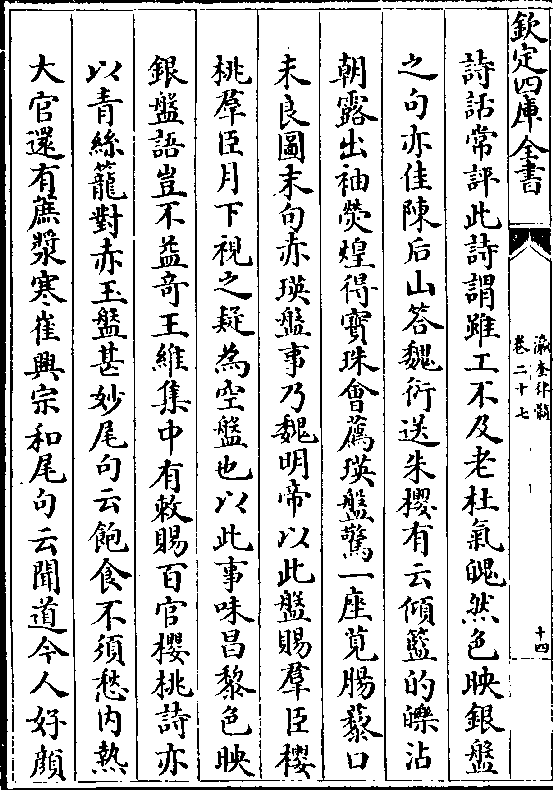 欽定四庫全書
瀛奎律髓
卷二十七
十四
詩話常評此詩謂雖工不及老杜氣魄然色映銀盤
之句亦佳陳后山答魏衍送朱櫻有云傾籃的皪沾
朝露出袖熒煌得寳珠會薦瑛盤驚一座覓腸藜口
未良圖末句赤瑛盤事乃魏明帝以此盤賜羣臣櫻
桃羣臣月下視之疑為空盤也以此事味昌黎色映
銀盤語豈不益竒王維集中有敕賜百官櫻桃詩亦
以青絲籠對赤玉盤甚妙尾句云飽食不須愁内熱
大官還有蔗漿寒崔興宗和尾句云聞道今人好顔